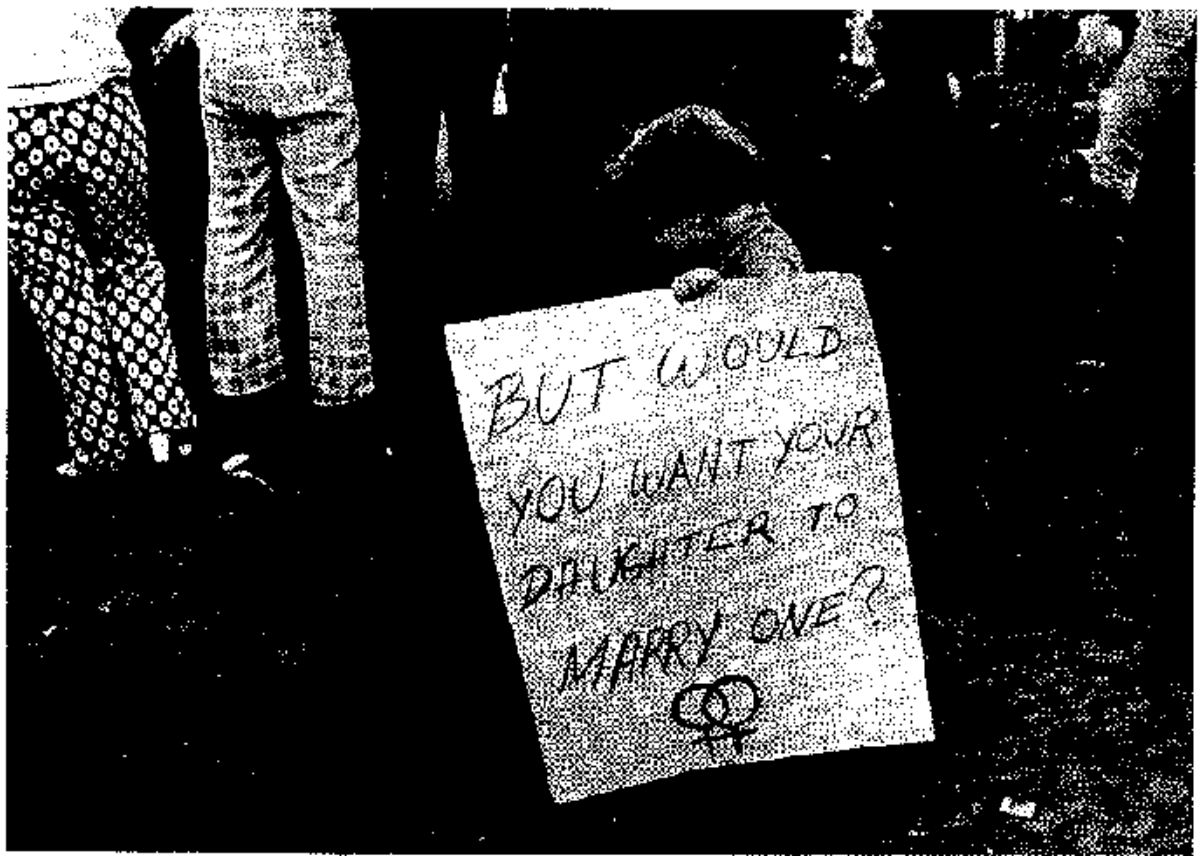 BUT WOULD
YOU WANT YOUR
DAUGHTER TO
MARRY ONE?